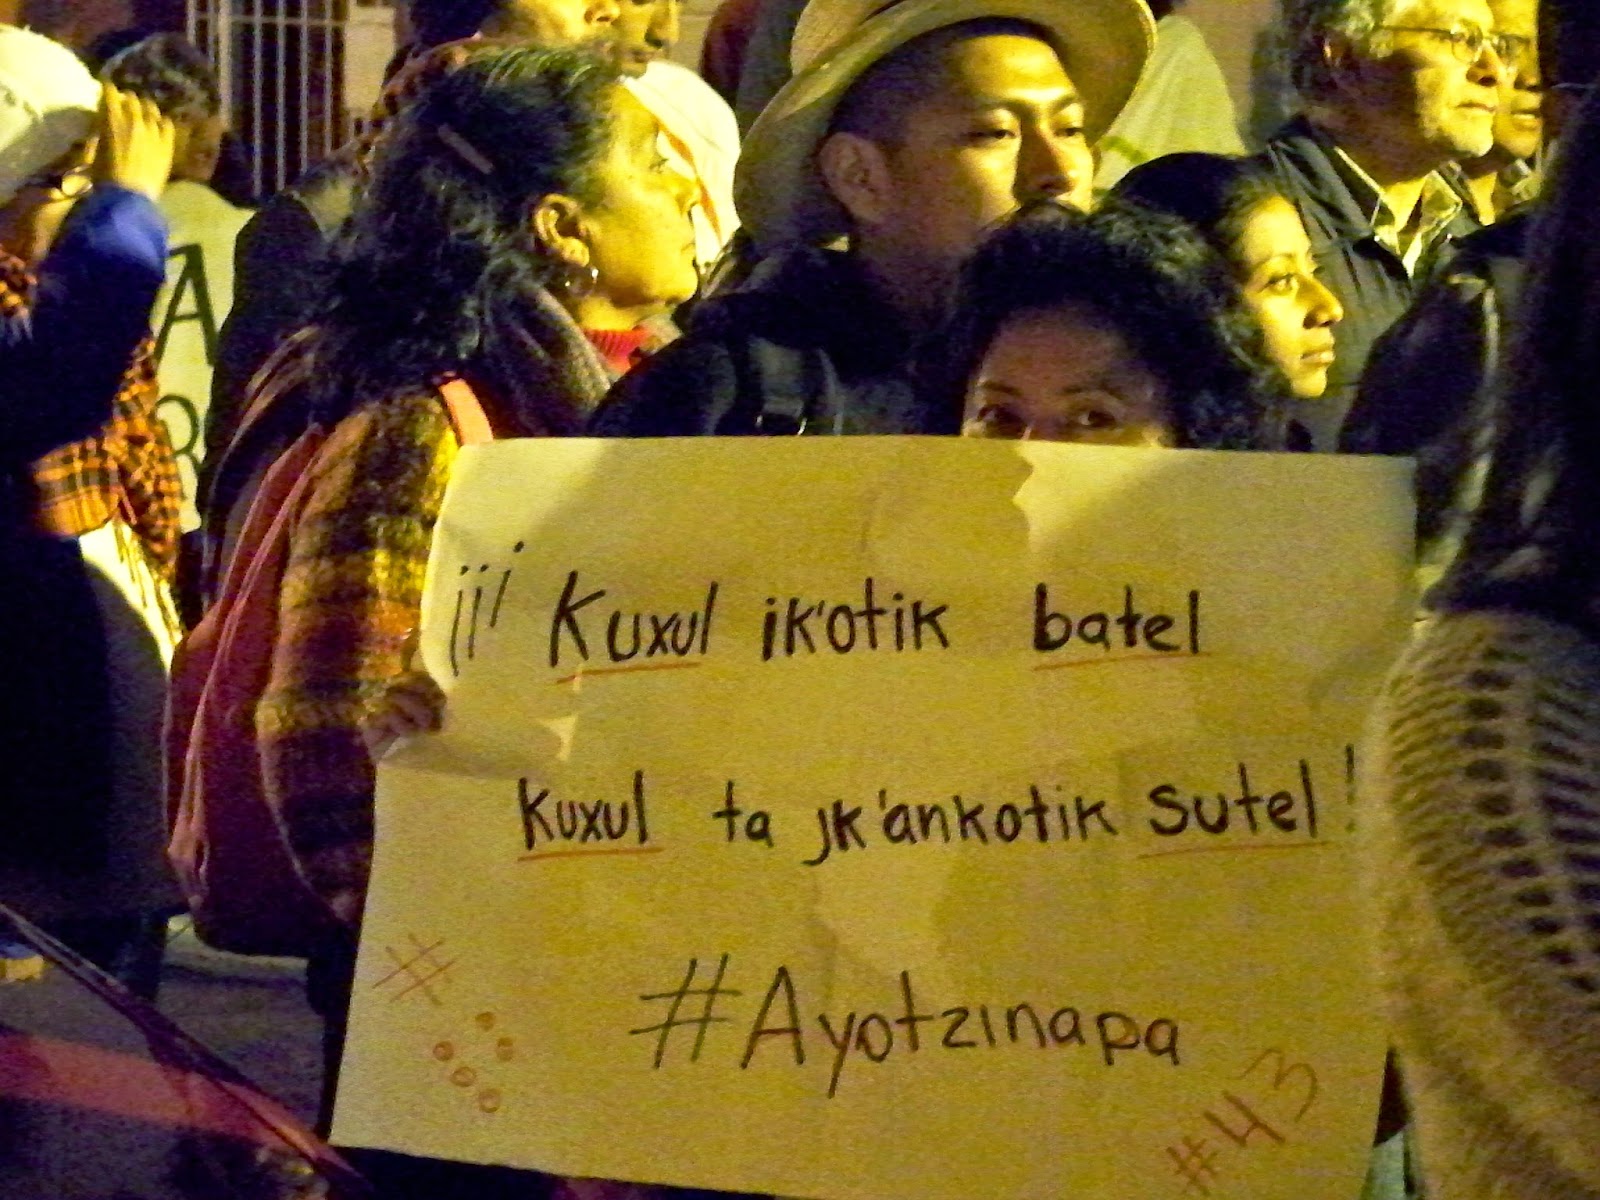 ¡¡¡ Kuxul ik'otik batel
kuxul ta jk'ankotik sutel !
#Ayotzinapa
#
#43
A
R